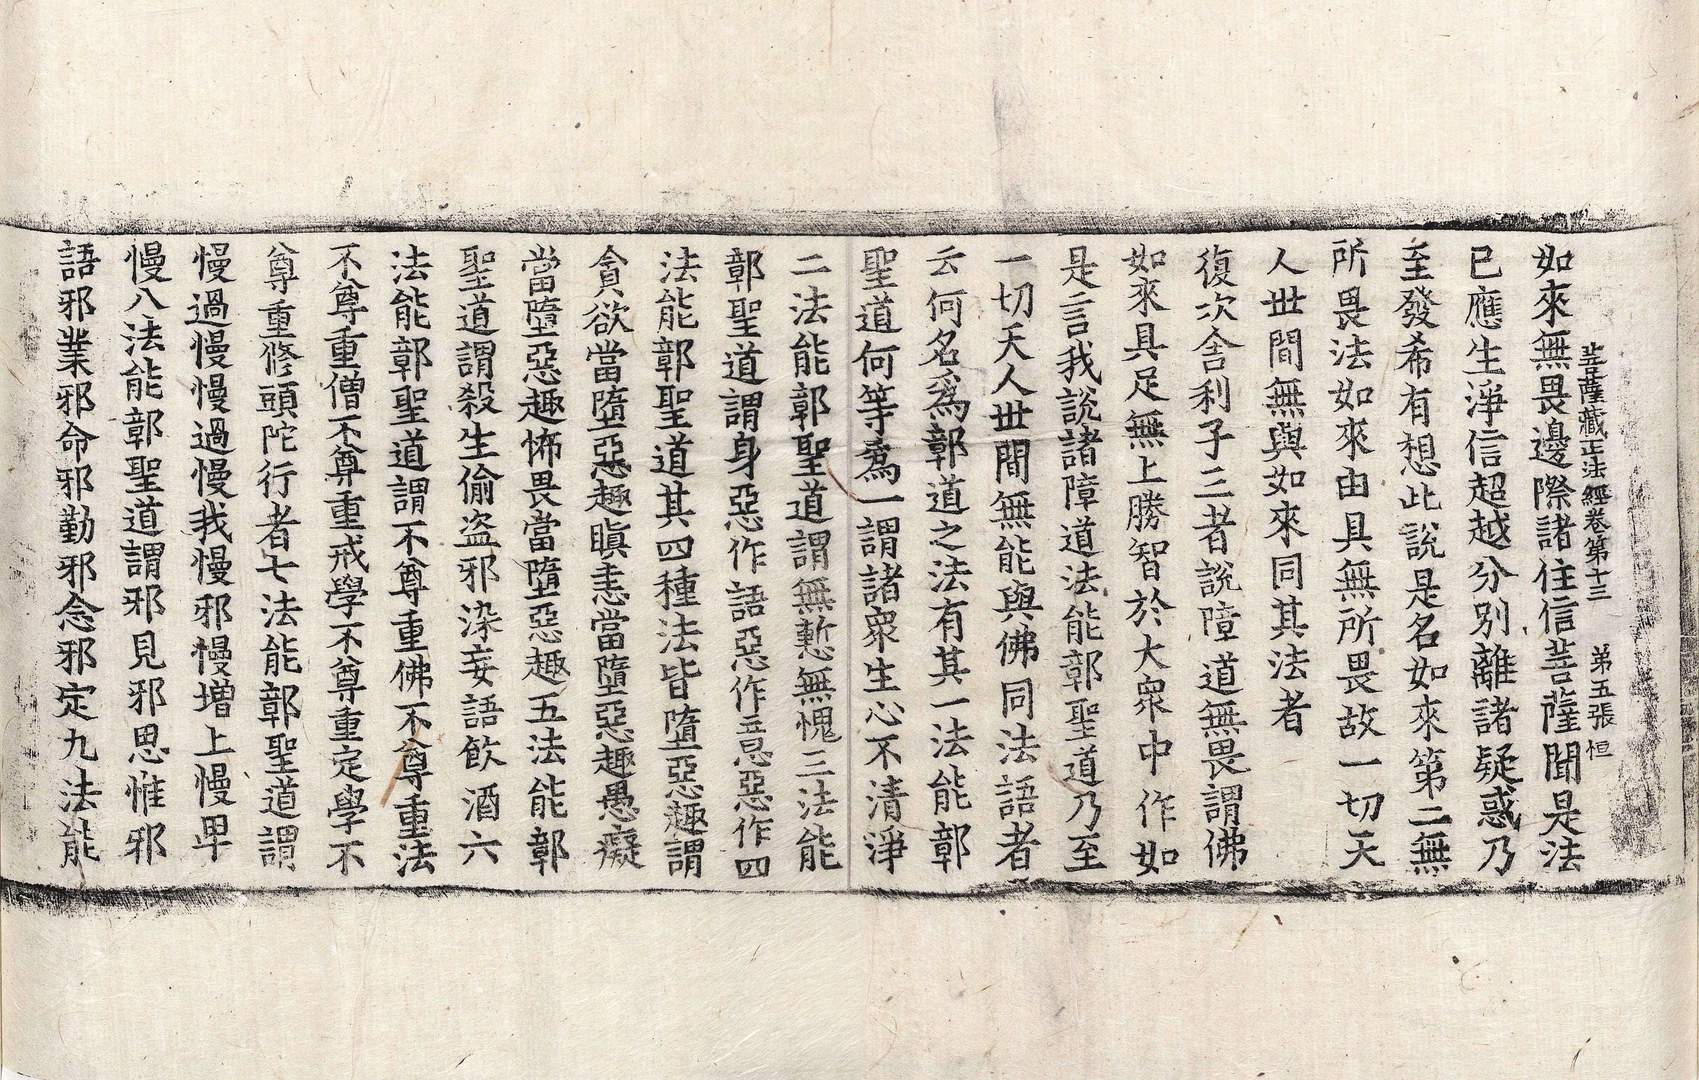 菩薩藏正法經卷第十三 第五張 恒
如來無畏邊際諸住信菩薩聞是法
已應生淨信超越分別離諸疑惑乃
至發希有想此說是名如來第二無
所畏法如來由具無所畏故一切天
人世間無與如來同其法者
復次舍利子三者說障道無畏謂佛
如來具足無上勝智於大衆中作如
是言我說諸障道法能鄣聖道乃至
一切天人世間無能與佛同法語者
云何名爲鄣道之法有其一法能鄣
聖道何等爲一謂諸衆生心不清淨
二法能鄣聖道謂無慙無愧三法能
鄣聖道謂身惡作語惡作意惡作四
法能鄣聖道其四種法皆墮惡趣謂
貪欲當墮惡趣瞋恚當墮惡趣愚癡
當墮惡趣怖畏當墮惡趣五法能鄣
聖道謂殺生偷盜邪染妄語飮酒六
法能鄣聖道謂不尊重佛不尊重法
不尊重僧不尊重戒學不尊重定學不
尊重修頭陀行者七法能鄣聖道謂
慢過慢慢過慢我慢邪慢增上慢卑
慢八法能鄣聖道謂邪見邪思惟邪
語邪業邪命邪勤邪念邪定九法能